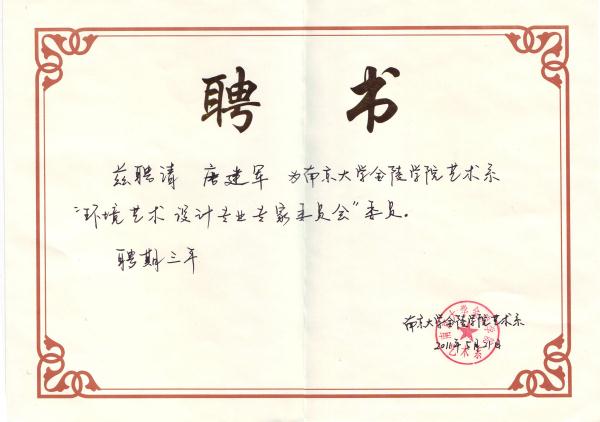 聘 书
兹聘请 唐建军 为南京大学金陵学院艺术系
"环境艺术设计专业专家委员会"委员。
聘期三年
南京大学金陵学院艺术系
2011年5月21日
艺术系